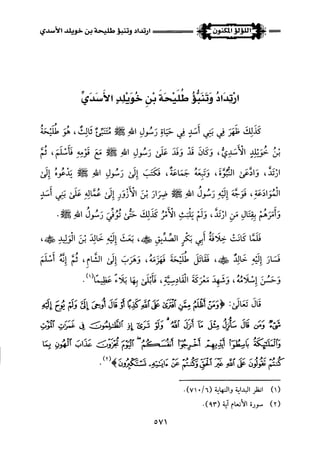 اللؤلؤ المكنون
ارتداد وتنبؤ طليحة بن خويلد الأسدي
ارْتِدَادُ وَتَنَبُّؤُ طُلَيْحَةَ بْنِ خُوَيْلِدٍ الأَسَدِيِّ
كَذَلِكَ ظَهَرَ فِي بَنِي أَسَدٍ فِي حَيَاةِ رَسُولِ اللهِ ﷺ مُتَنَبِّئٌ ثَالِثٌ، هُوَ طُلَيْحَةُ
بْنُ خُوَيْلِدٍ الأَسَدِيُّ، وَكَانَ قَدْ وَفَدَ عَلَى رَسُولِ اللهِ ﷺ مَعَ قَوْمِهِ فَأَسْلَمَ، ثُمَّ
ارْتَدَّ، وَادَّعَىٰ النُّبُوَّةَ، وَتَبِعَهُ جَمَاعَةٌ، فَكَتَبَ إِلَى رَسُولِ اللهِ ﷺ يَدْعُوهُ إِلَى
المُوَادَعَةِ، فَوَجَّهَ إِلَيْهِ رَسُولُ اللهِ ﷺ ضِرَارَ بْنَ الأَزْوَرِ إِلَى عُمَّالِهِ عَلَى بَنِي أَسَدٍ
وَأَمَرَهُمْ بِقِتَالِ مَنِ ارْتَدَّ، وَلَمْ يَلْبَثِ الأَمْرُ كَذَلِكَ حَتَّىٰ تُوُفِّيَ رَسُولُ اللهِ ﷺ.
فَلَمَّا كَانَتْ خِلَافَةُ أَبِي بَكْرٍ الصِّدِّيقِ ﵁، بَعَثَ إِلَيْهِ خَالِدَ بْنَ الوَلِيدِ ﵁،
فَسَارَ إِلَيْهِ خَالِدٌ ﵁، فَقَاتَلَ طُلَيْحَةَ فَهَزَمَهُ، وَهَرَبَ إِلَى الشَّامِ، ثُمَّ إِنَّهُ أَسْلَمَ
وَحَسُنَ إِسْلَامُهُ، وَشَهِدَ مَعْرَكَةَ القَادِسِيَّةِ، فَأَبْلَىٰ بِهَا بَلَاءً عَظِيمًا(١).
قَالَ تَعَالَى: ﴿وَمَنْ أَظْلَمُ مِمَّنِ افْتَرَىٰ عَلَى اللَّهِ كَذِبًا أَوْ قَالَ أُوحِيَ إِلَيَّ وَلَمْ يُوحَ إِلَيْهِ
شَيْءٌ وَمَن قَالَ سَأُنزِلُ مِثْلَ مَا أَنزَلَ اللَّهُ وَلَوْ تَرَىٰ إِذِ الظَّالِمُونَ فِي غَمَرَاتِ الْمَوْتِ
وَالْمَلَائِكَةُ بَاسِطُوا أَيْدِيهِمْ أَخْرِجُوا أَنفُسَكُمُ الْيَوْمَ تُجْزَوْنَ عَذَابَ الْهُونِ بِمَا
كُنتُمْ تَقُولُونَ عَلَى اللَّهِ غَيْرَ الْحَقِّ وَكُنتُمْ عَنْ آيَاتِهِ تَسْتَكْبِرُونَ﴾(٢).
(١) انظر البداية والنهاية (٧١٠/٦).
(٢) سورة الأنعام آية (٩٣).
٥٧١